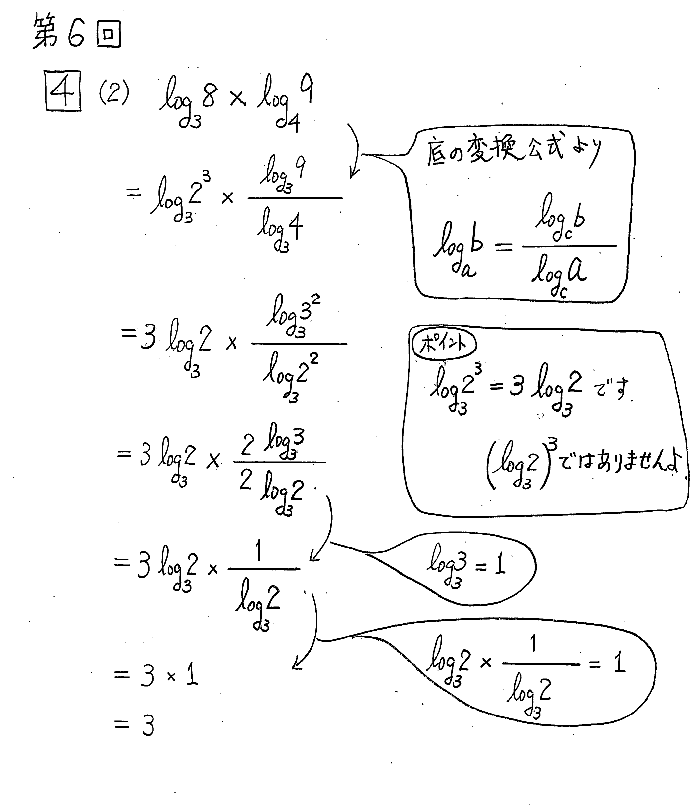 第6回
4 (2) log₃8 × log₄9
= log₃2³ × log₃9 / log₃4
底の変換公式より
logₐb = log_c b / log_c a
= 3 log₃2 × log₃3² / log₃2²
ポイント
log₃2³ = 3 log₃2 です
(log₃2)³ ではありませんよ
= 3 log₃2 × 2 log₃3 / 2 log₃2
= 3 log₃2 × 1 / log₃2
log₃3 = 1
log₃2 × 1 / log₃2 = 1
= 3 × 1
= 3